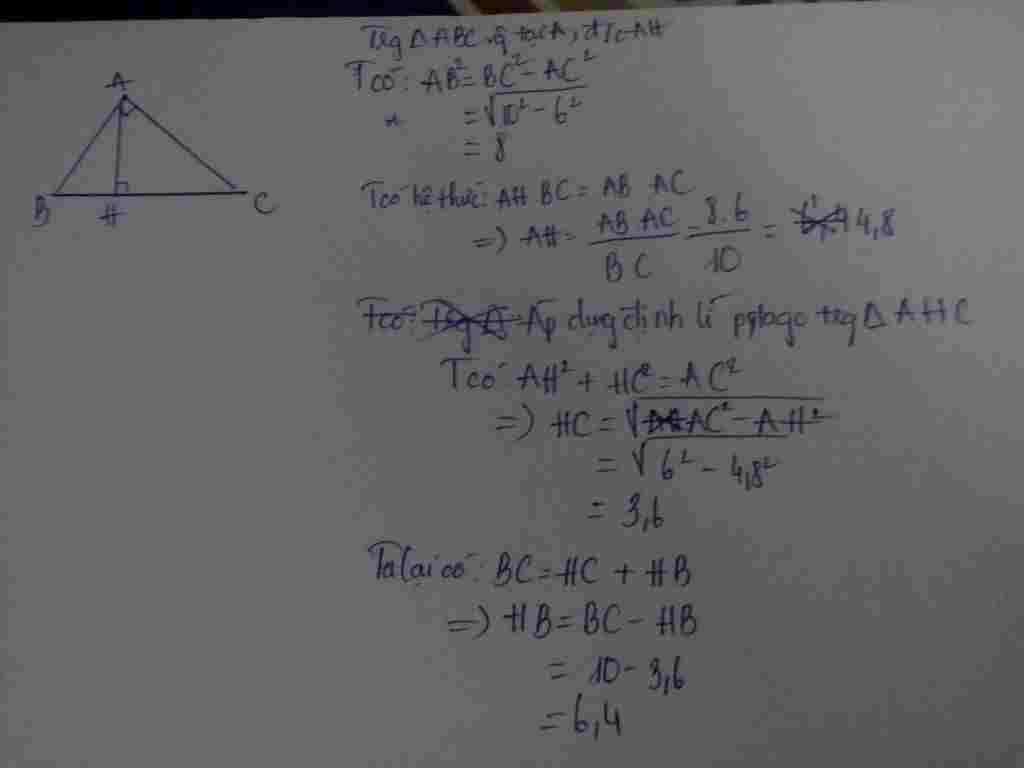 A
B H C
Trg Δ ABC v̂ tại A, đ/c AH
Tcó: AB² = BC² - AC²
= √10² - 6²
= 8
Tcó hệ thức: AH BC = AB AC
=> AH = AB AC / BC = 8.6 / 10 = 4,8
Tcó: Trg Δ Áp dụng định lí pytago trg Δ AHC
Tcó AH² + HC² = AC²
=> HC = √AC² - AH²
= √6² - 4,8²
= 3,6
Ta lại có: BC = HC + HB
=> HB = BC - HB
= 10 - 3,6
= 6,4